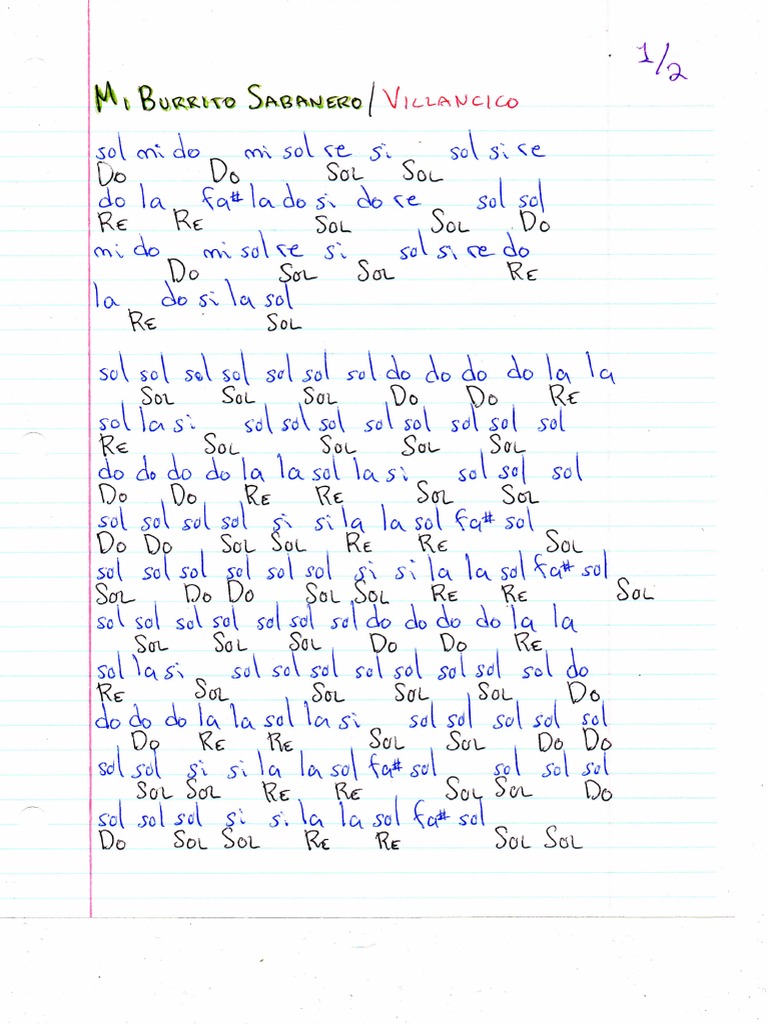 1/2
Mi Burrito Sabanero / Villancico
sol mi do mi sol re si sol si re
Do Do Sol Sol
do la fa# la do si do re sol sol
Re Re Sol Sol Do
mi do mi sol re si sol si re do
Do Sol Sol Re
la do si la sol
Re Sol
sol sol sol sol sol sol sol do do do do la la
Sol Sol Sol Do Do Re
sol la si sol sol sol sol sol sol sol sol
Re Sol Sol Sol Sol
do do do do la la sol la si sol sol sol
Do Do Re Re Sol Sol
sol sol sol sol si si la la sol fa# sol
Do Do Sol Sol Re Re Sol
sol sol sol sol sol sol si si la la sol fa# sol
Sol Do Do Sol Sol Re Re Sol
sol sol sol sol sol sol sol do do do do la la
Sol Sol Sol Do Do Re
sol la si sol sol sol sol sol sol sol sol do
Re Sol Sol Sol Sol Do
do do do la la sol la si sol sol sol sol sol
Do Re Re Sol Sol Do Do
sol sol si si la la sol fa# sol sol sol sol
Sol Sol Re Re Sol Sol Do
sol sol sol si si la la sol fa# sol
Do Sol Sol Re Re Sol Sol